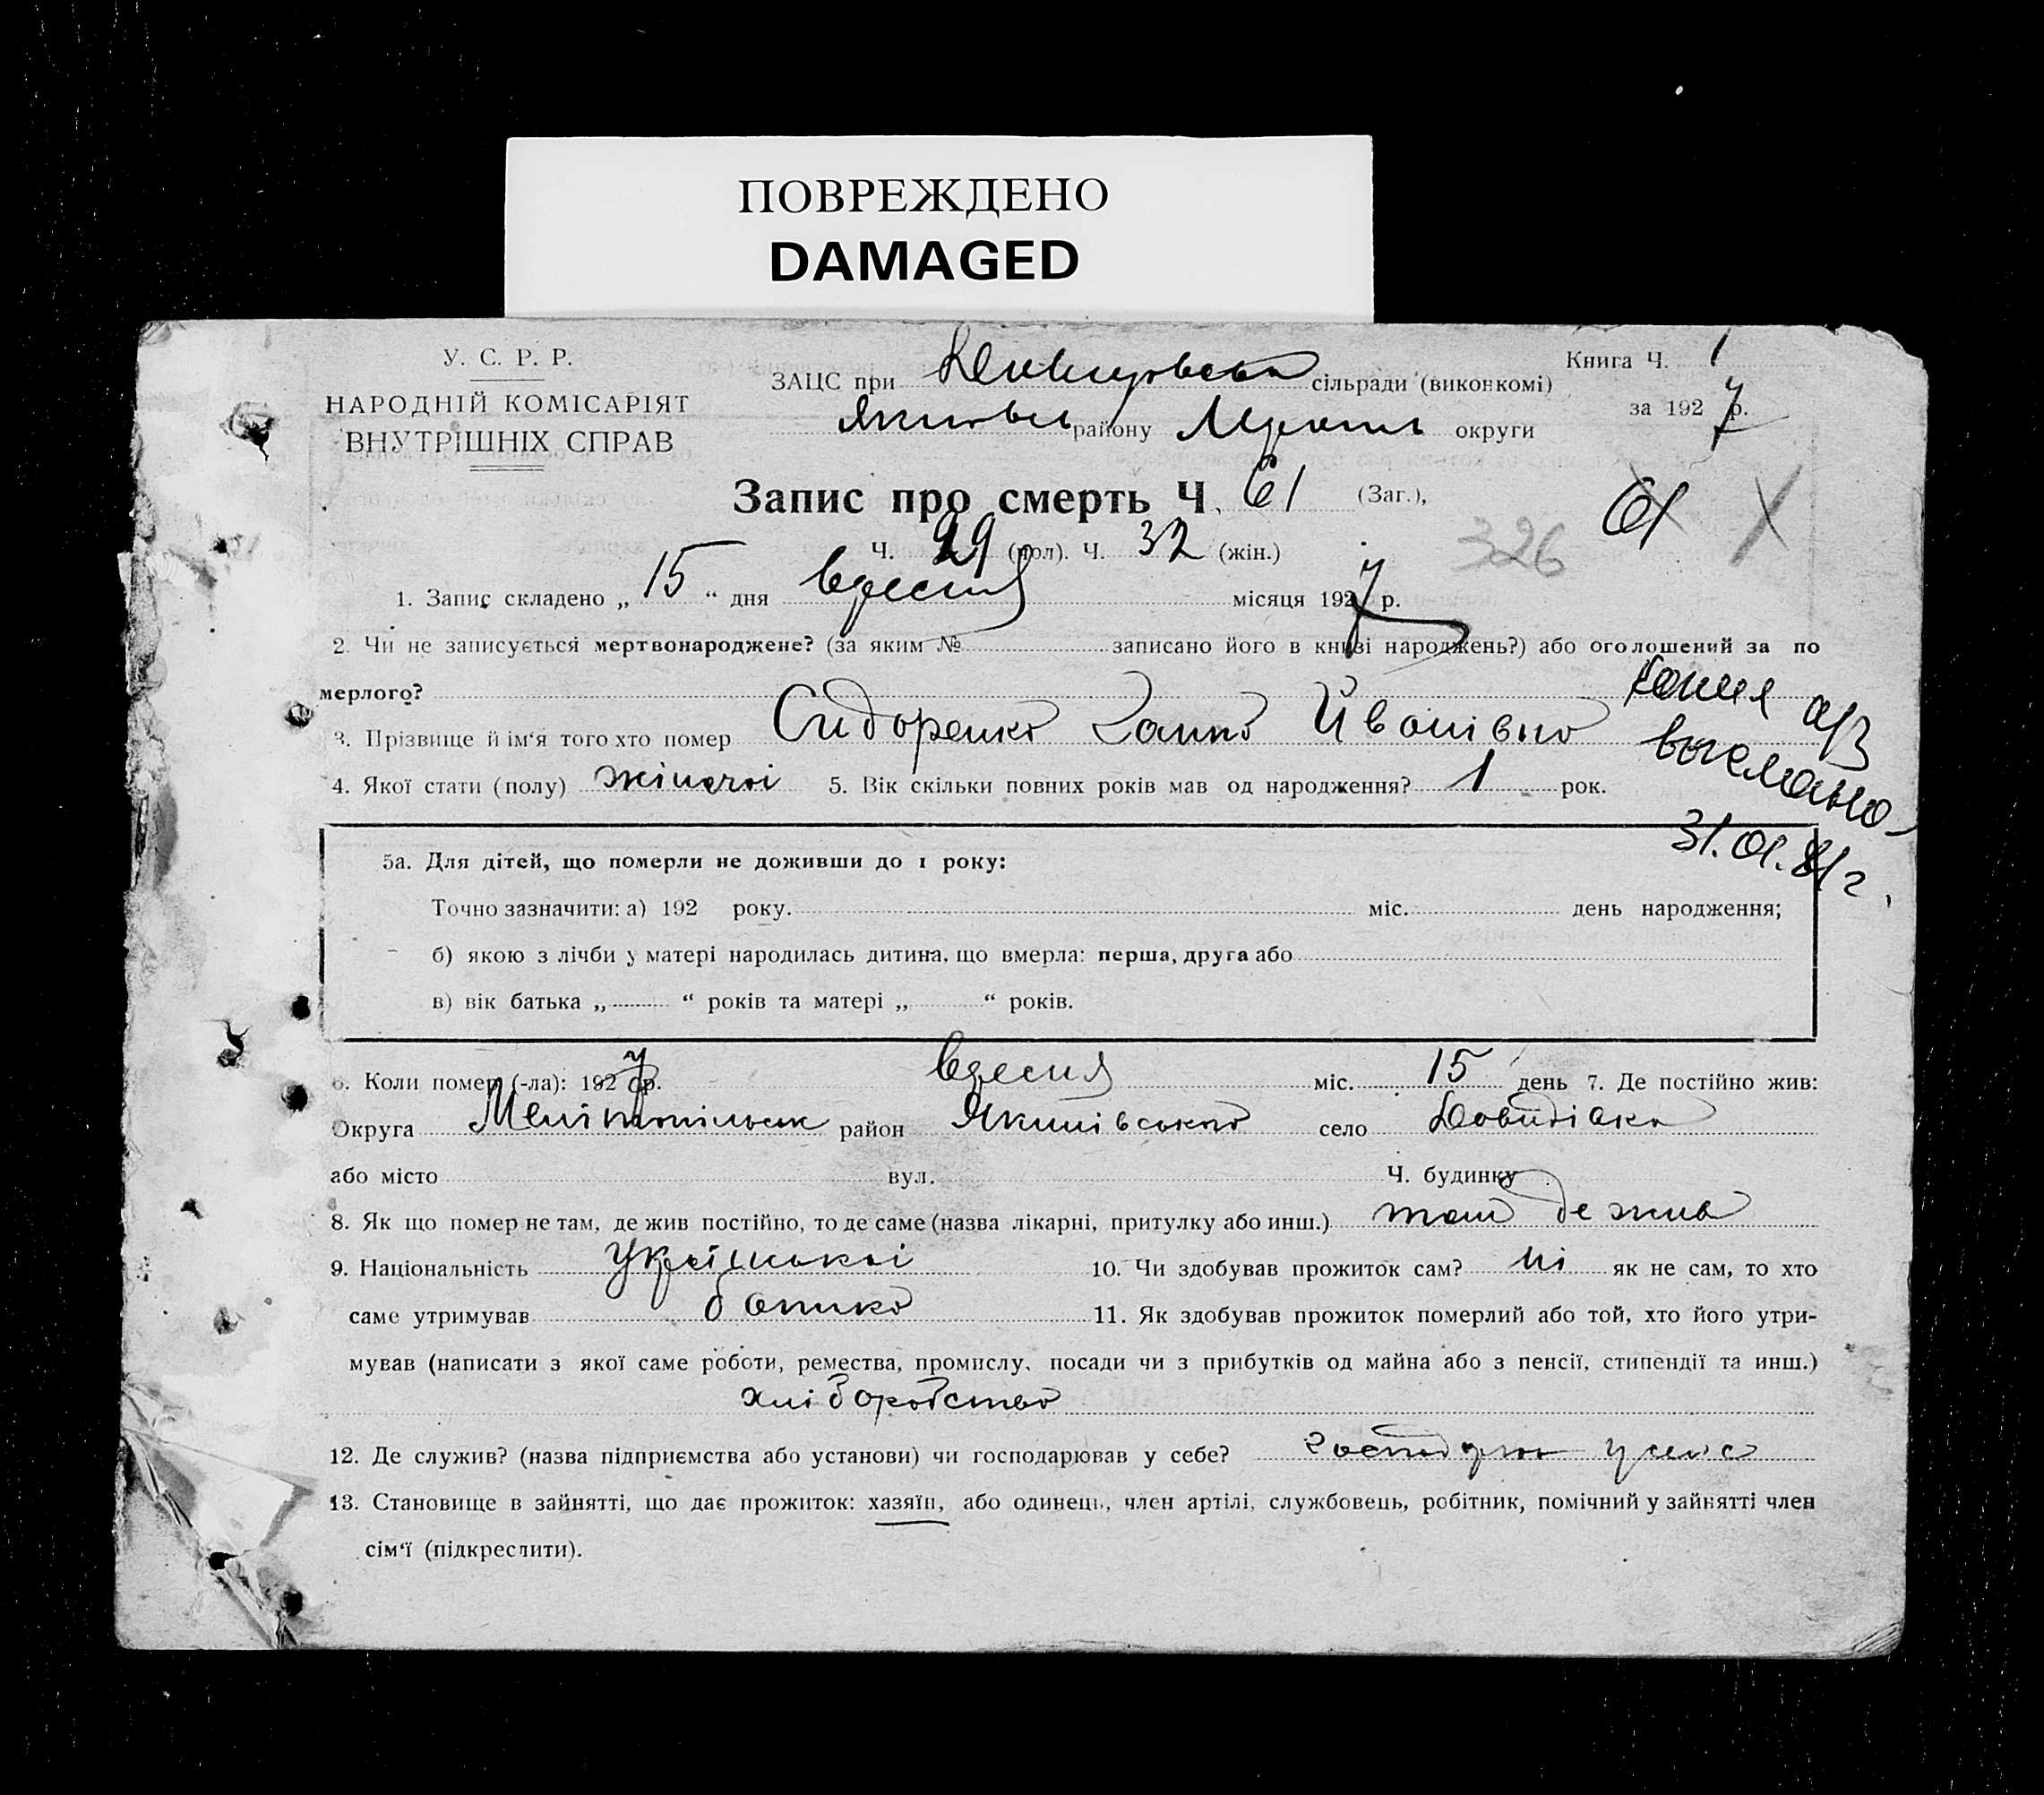 ПОВРЕЖДЕНО
DAMAGED
У. С. Р. Р.
НАРОДНІЙ КОМІСАРІЯТ
ВНУТРІШНІХ СПРАВ
ЗАЦС при сільради (виконкомі)
району округи
Книга Ч. 1
за 1927 р.
Запис про смерть Ч. 61 (Заг.),
61
Ч. 29 (пол). Ч. 32 (жін.)
326
1. Запис складено „ 15 “ дня вересня місяця 1927 р.
2. Чи не записується мертвонароджене? (за яким № записано його в книзі народжень?) або оголошений за по
мерлого?
копия
выслано
31.01.81 г.
3. Прізвище й ім‘я того хто помер Сидоренко Ганна Йванівна
4. Якої стати (полу) жіночої 5. Вік скільки повних років мав од народження? 1 рок.
5а. Для дітей, що померли не доживши до 1 року:
Точно зазначити: а) 192 року. міс. день народження;
б) якою з лічби у матері народилась дитина, що вмерла: перша, друга або
в) вік батька „ “ років та матері „ “ років.
6. Коли помер (-ла): 1927 р. вересня міс. 15 день 7. Де постійно жив:
Округа Мелітопільськ район Якимівського село Давидівка
або місто вул. Ч. будинку
8. Як що помер не там, де жив постійно, то де саме (назва лікарні, притулку або инш.) там де жив
9. Національність української 10. Чи здобував прожиток сам? ні як не сам, то хто
саме утримував батько 11. Як здобував прожиток померлий або той, хто його утри-
мував (написати з якої саме роботи, ремества, промислу, посади чи з прибутків од майна або з пенсії, стипендії та инш.)
хліборобство
12. Де служив? (назва підприємства або установи) чи господарював у себе?
13. Становище в зайнятті, що дає прожиток: хазяїн, або одинець, член артілі, службовець, робітник, помічний у зайнятті член
сім‘ї (підкреслити).